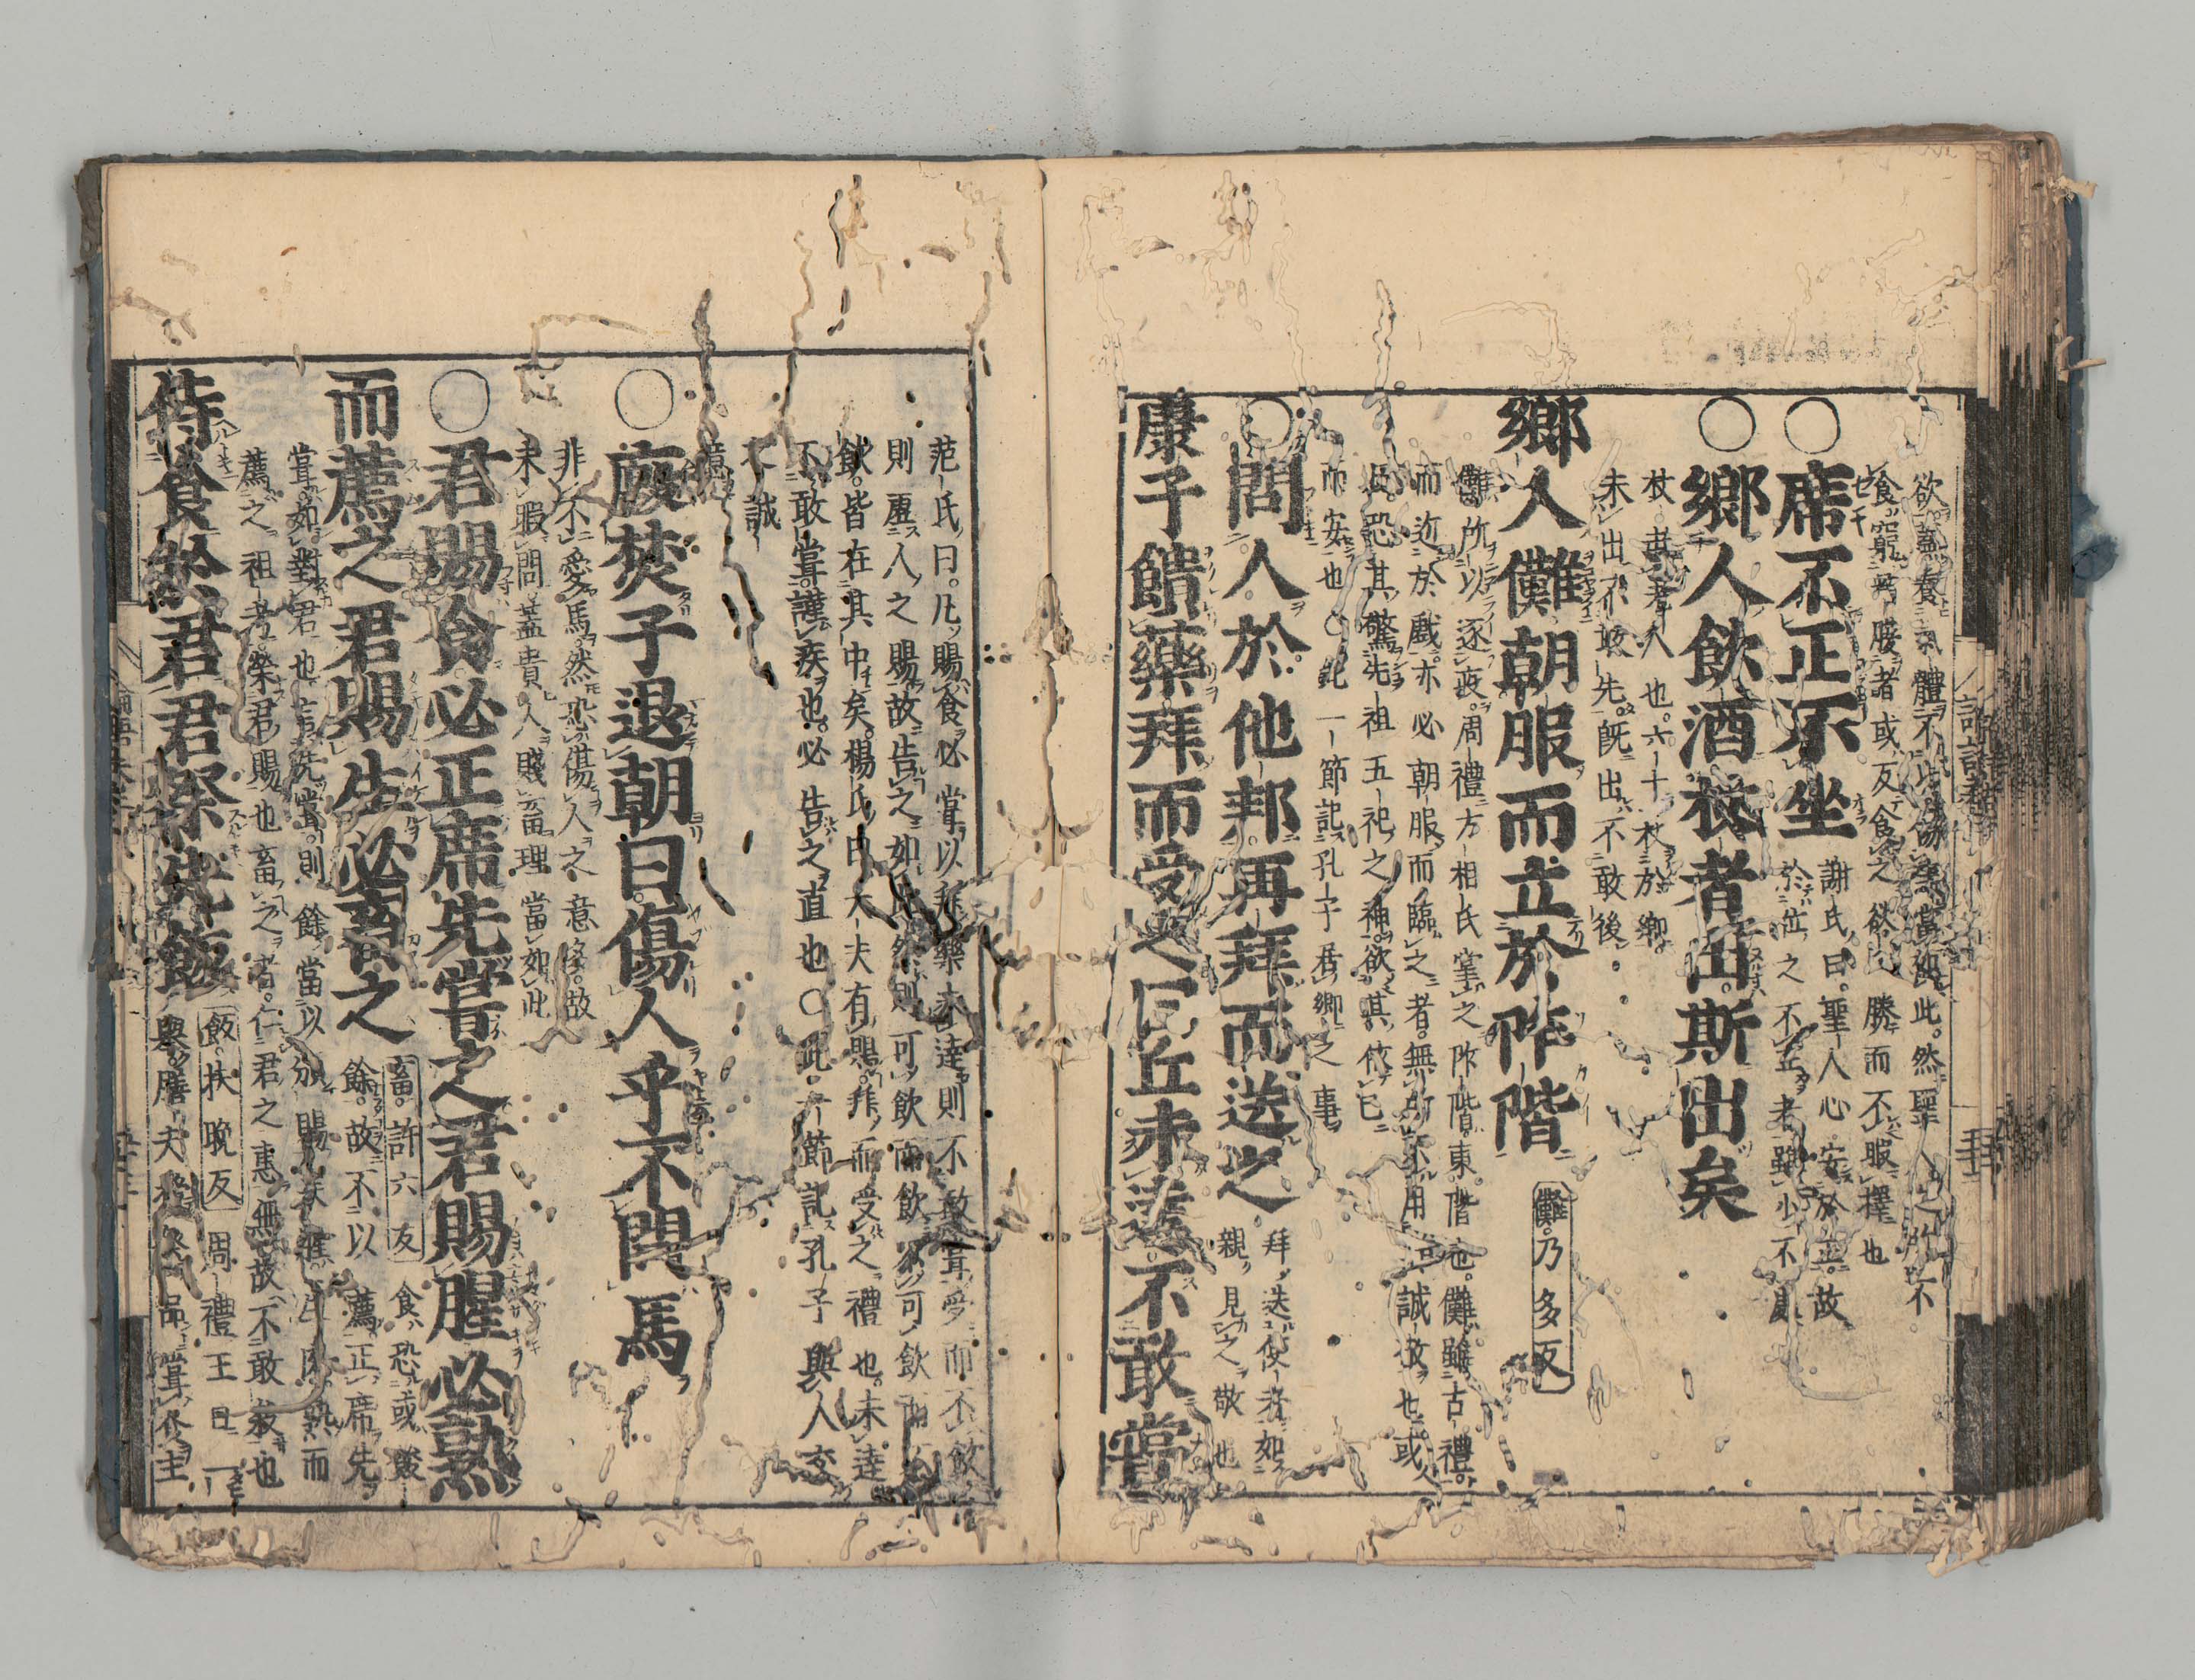 欲。蓋養氣體。不以傷生。當如此。然聖人之所不
食。窮口腹者或反食之。欲心勝而不暇擇也
○席不正不坐
謝氏曰。聖人心安於正。故
於位之不正者。雖小不處
○鄉人飲酒杖者出斯出矣
杖者老人也。六十杖於鄉。
未出不敢先。既出不敢後。
鄉人儺朝服而立於阼階
儺。乃多反
儺所以逐疫。周禮方相氏掌之。阼階。東階也。儺雖古禮。
而近於戲。亦必朝服而臨之者。無所不用其誠敬也。或
曰。恐其驚先祖五祀之神。欲其依己
而安也○此一節記孔子居鄉之事。
○問人於他邦再拜而送之
拜送使者。如
親見之。敬也
康子饋藥拜而受之曰丘未達不敢嘗
范氏曰。凡賜食必嘗以拜。藥未達則不敢嘗。受而不飲
則虛人之賜。故告之如此。然則可飲而飲。不可飲而不
飲。皆在其中矣。楊氏曰。大夫有賜。拜而受之禮也。未達
不敢嘗。謹疾也。必告之直也○此一節記孔子與人交
之誠
意
○廄焚子退朝曰傷人乎不問馬
非不愛馬。然恐傷人之意多。故
未暇問。蓋貴人賤畜。理當如此
○君賜食必正席先嘗之君賜腥必熟
而薦之君賜生必畜之
畜。許六反
食恐或餕
餘。故不以薦。正席先
嘗。如對君也。言先嘗。則餘當以頒賜矣。腥。生肉。熟而
薦之祖考。榮君賜也。畜之者。仁君之惠。無故不敢殺也
侍食於君君祭先飯
飯。扶晚反
周禮王日一
舉。膳夫授祭品嘗食。王